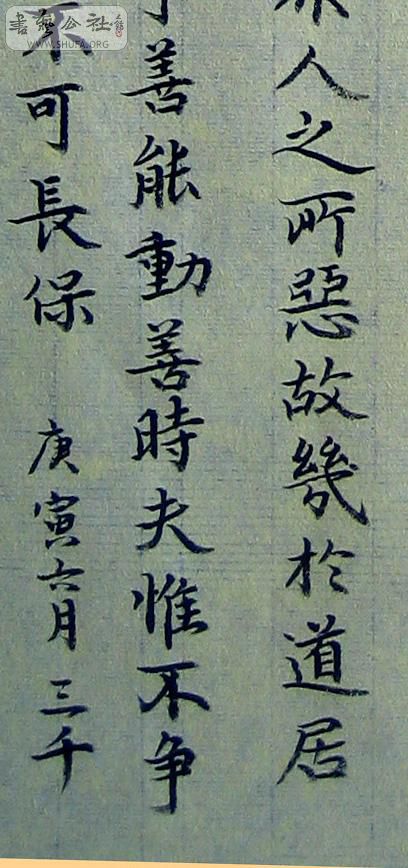 人之所惡故幾於道居
善能動善時夫惟不争
不可長保 庚寅六月三千
書藝公社
WWW.SHUFA.ORG